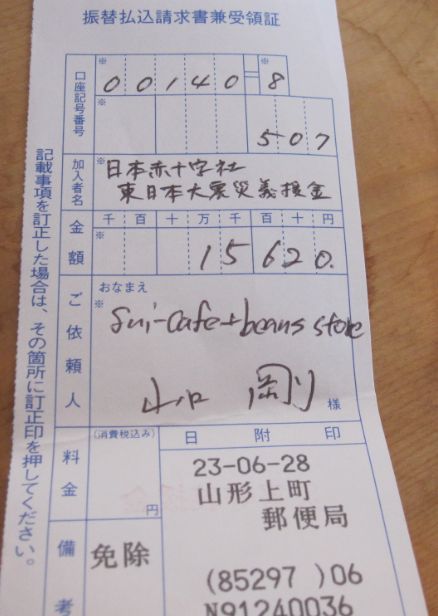 振替払込請求書兼受領証
口座記号番号
※ 00140-※ 8
※ 507
加入者名
※日本赤十字社
東日本大震災義援金
金額
千百十万千百十円
※ 15620.
ご依頼人
おなまえ
※
Sui-cafe+beans store
山口 剛 様
料金
(消費税込み)
円
日附印
23-06-28
山形上町
郵便局
(85297 )06
N91240036
備考
免除
記載事項を訂正した場合は、その箇所に訂正印を押してください。